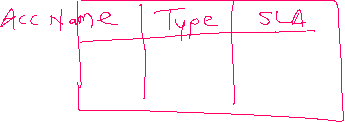 Acc Name Type SLA